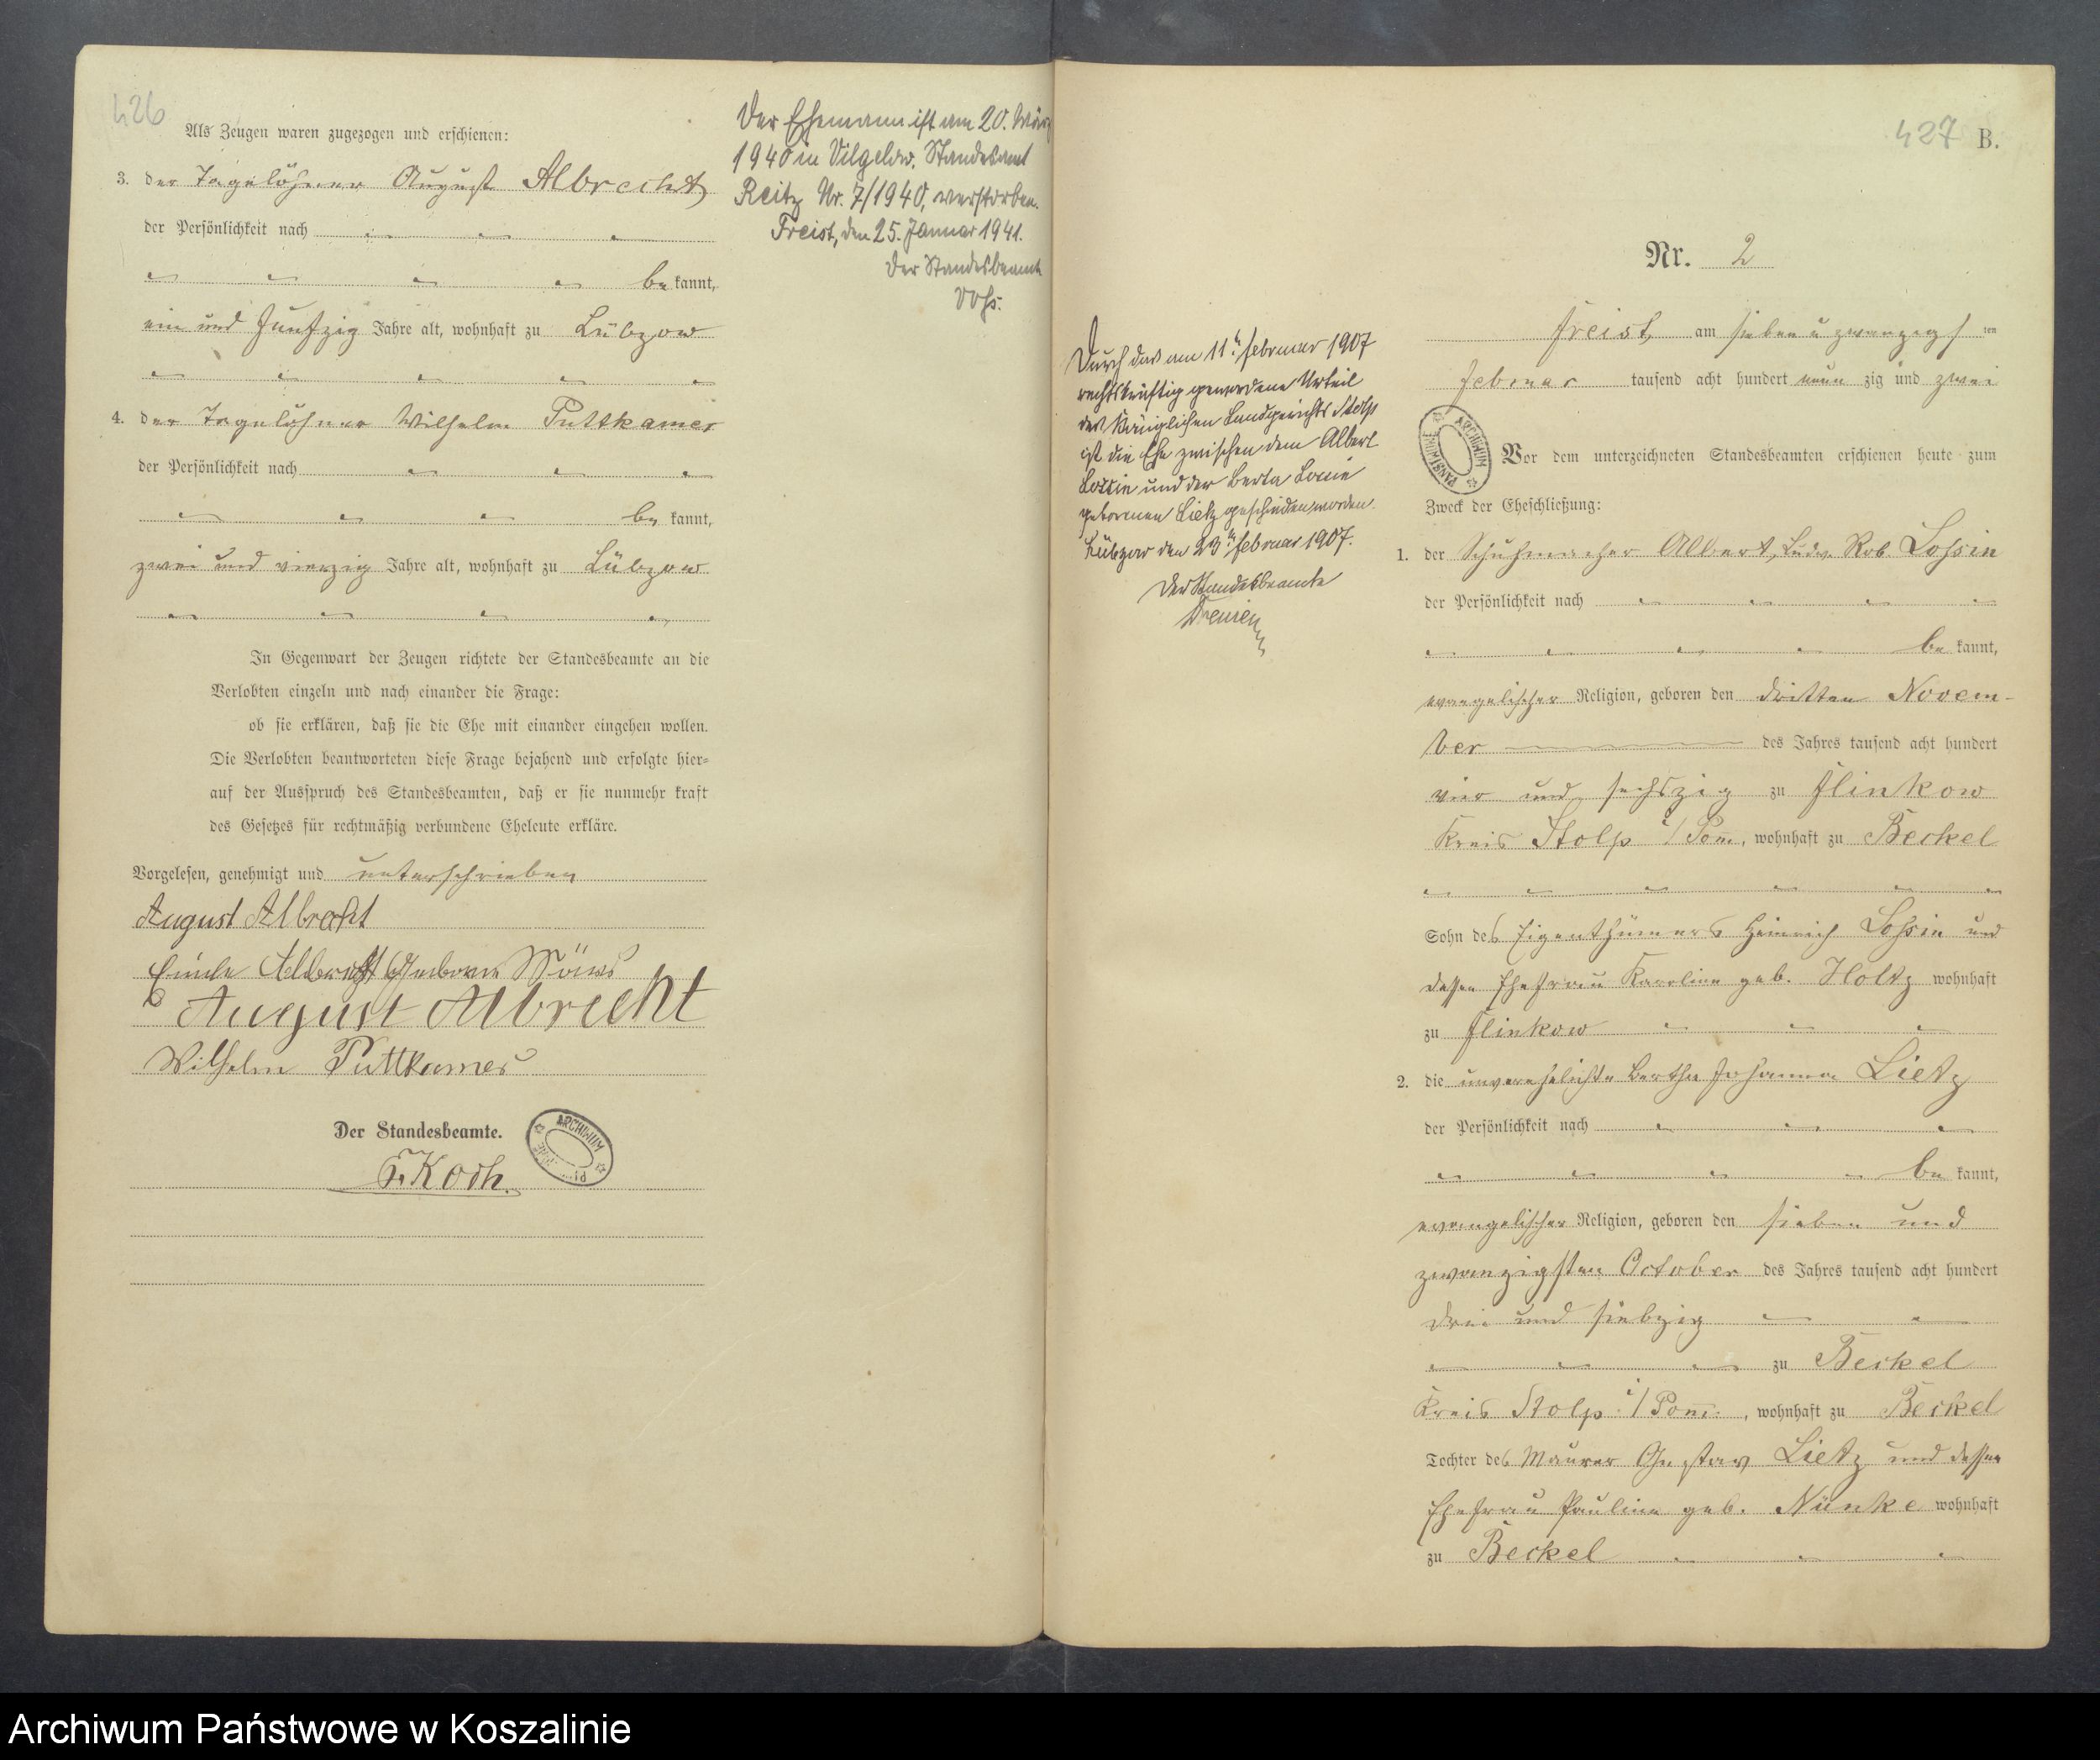 426
Als Zeugen waren zugezogen und erschienen:
3. der Tagelöhner August Albrecht
der Persönlichkeit nach
bekannt,
ein und funfzig Jahre alt, wohnhaft zu Lübzow
4. der Tagelöhner Wilhelm Puttkamer
der Persönlichkeit nach
bekannt,
zwei und vierzig Jahre alt, wohnhaft zu Lübzow
In Gegenwart der Zeugen richtete der Standesbeamte an die
Verlobten einzeln und nach einander die Frage:
ob sie erklären, daß sie die Ehe mit einander eingehen wollen.
Die Verlobten beantworteten diese Frage bejahend und erfolgte hier=
auf der Ausspruch des Standesbeamten, daß er sie nunmehr kraft
des Gesetzes für rechtmäßig verbundene Eheleute erkläre.
Vorgelesen, genehmigt und unterschrieben
August Albrecht
Albrecht
August Albrecht
Wilhelm Puttkamer
Der Standesbeamte.
ARCHIWUM
F. Koch.
Der Ehemann ist am 20. März
1940 in Vilgelow, Standesamt
Reitz Nr. 7/1940, verstorben.
Freist, den 25. Januar 1941.
Der Standesbeamte
Voß.
427 B.
Nr. 2
Freist, am sieben u zwanzigsten
Februar tausend acht hundert neunzig und zwei
ARCHIWUM PAŃSTWOWE
Vor dem unterzeichneten Standesbeamten erschienen heute zum
Zweck der Eheschließung:
1. der Schuhmacher Albert, Ludw. Rob. Loßin
der Persönlichkeit nach
bekannt,
evangelischer Religion, geboren den dritten Novem-
ber des Jahres tausend acht hundert
vier und sechszig zu Flinkow
Kreis Stolp i/Pom., wohnhaft zu Beckel
Sohn des Eigenthümers Heinrich Loßin und
dessen Ehefrau Karoline geb. Holtz wohnhaft
zu Flinkow
2. die unverehelichte Bertha Johanna Lietz
der Persönlichkeit nach
bekannt,
evangelischer Religion, geboren den sieben und
zwanzigsten October des Jahres tausend acht hundert
drei und siebzig
zu Beckel
Kreis Stolp i/Pom., wohnhaft zu Beckel
Tochter des Maurer Gustav Lietz und dessen
Ehefrau Pauline geb. Nünke wohnhaft
zu Beckel
Durch das am 11. Februar 1907
rechtskräftig gewordene Urteil
des Königlichen Landgerichts Stolp
ist die Ehe zwischen dem Albert
Lossin und der Berta Lossin
geborenen Lietz geschieden worden.
Lübzow den 23. Februar 1907.
Der Standesbeamte
Archiwum Państwowe w Koszalinie